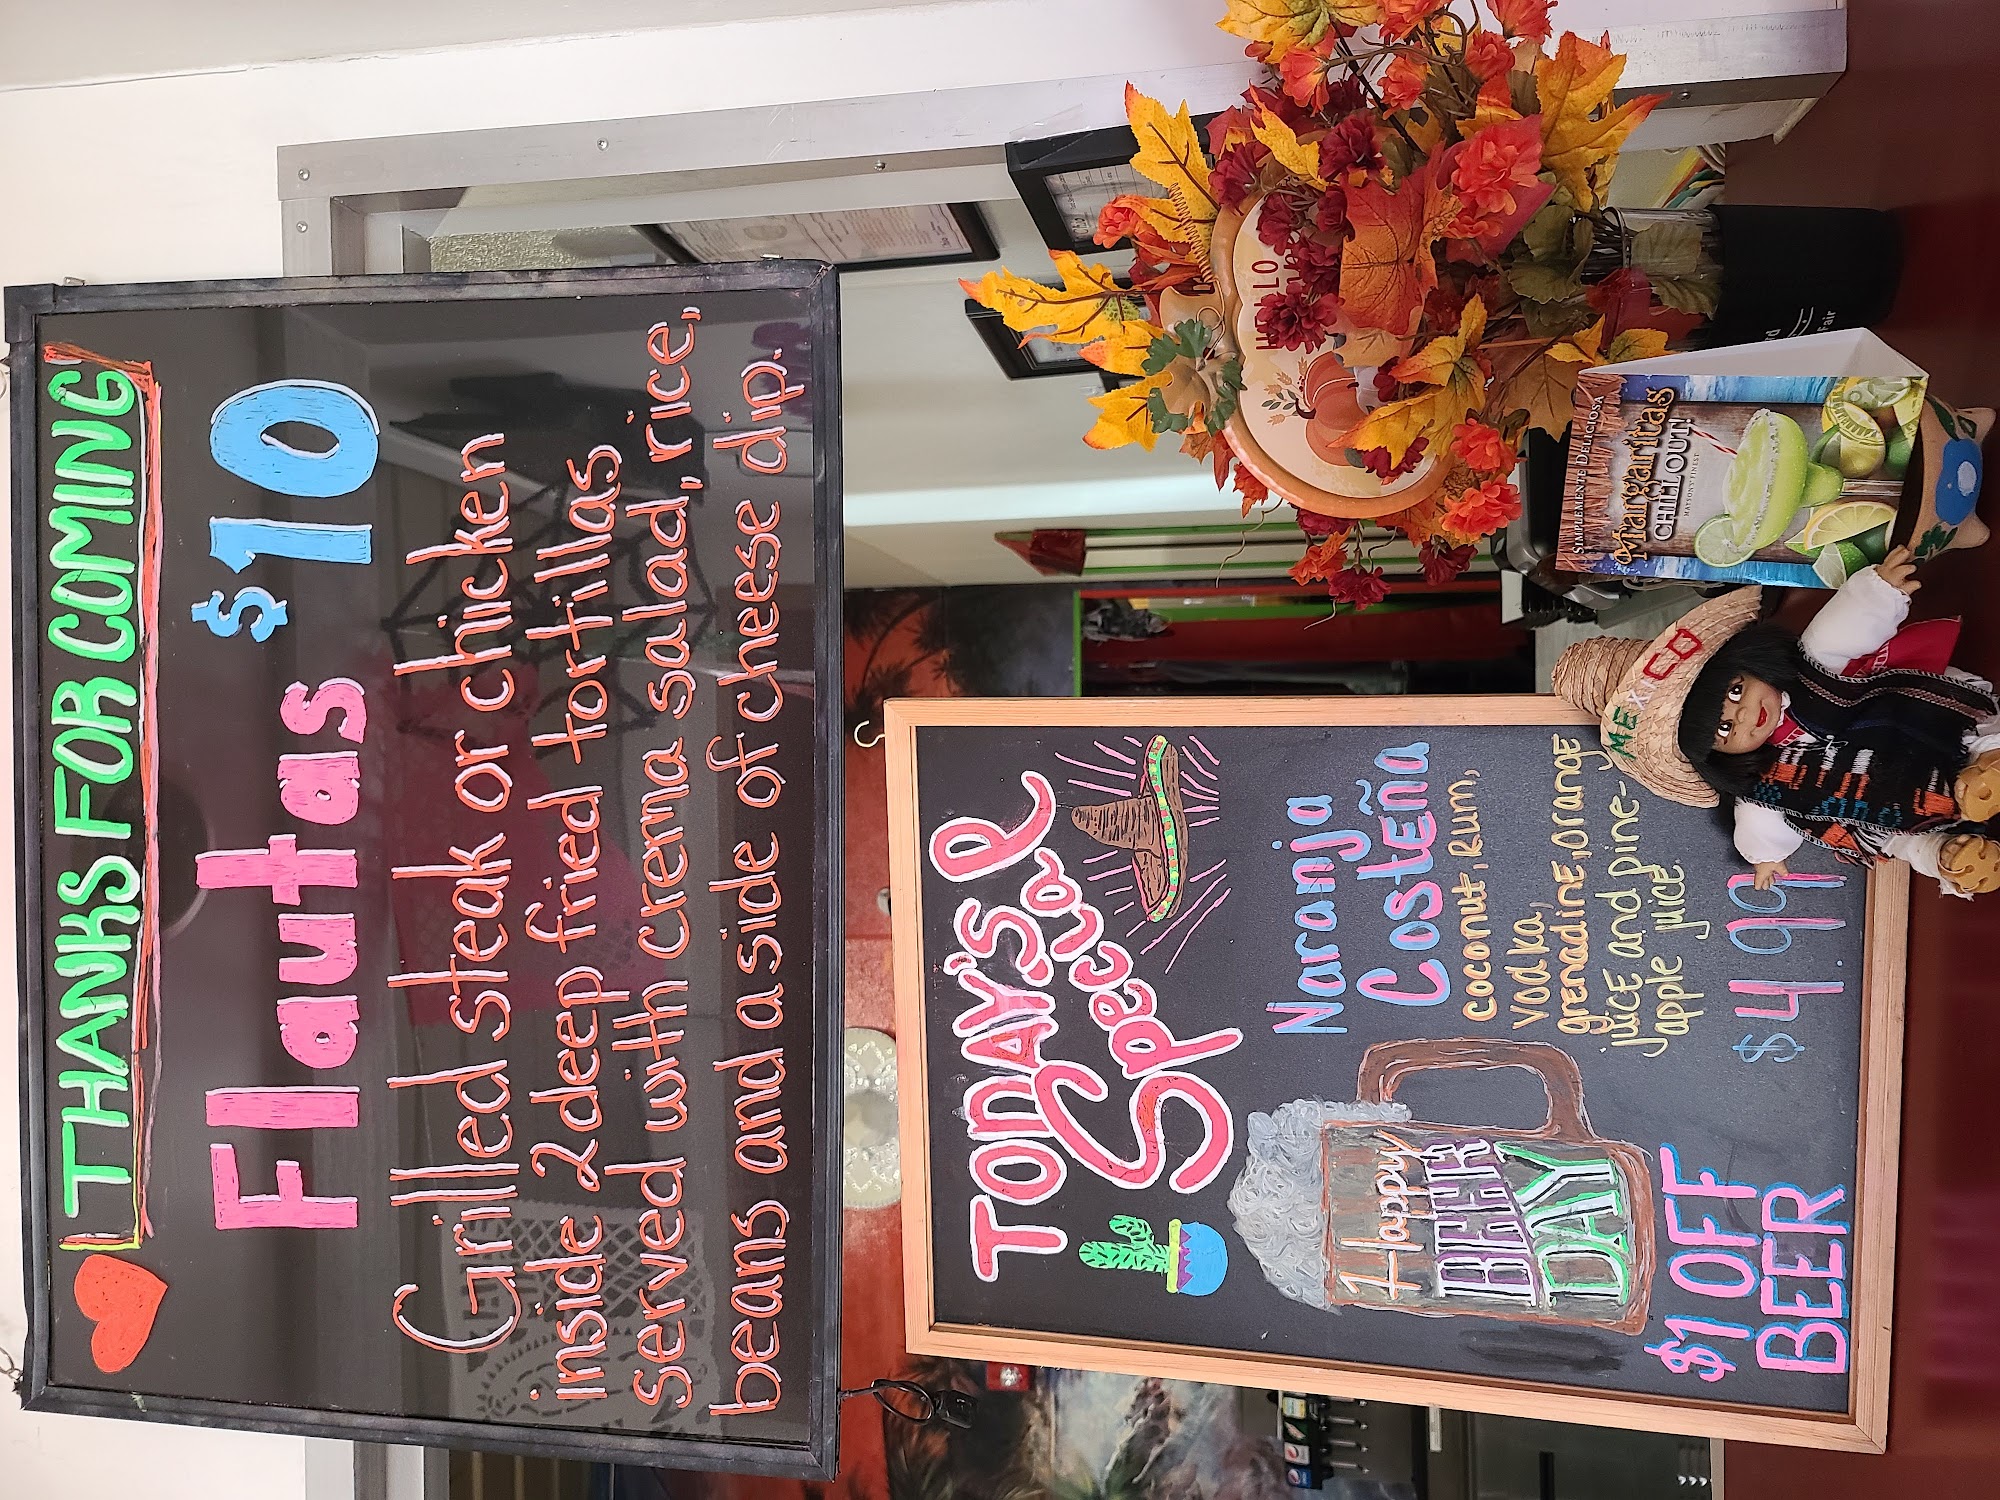 THANKS FOR COMING
Flautas $10
Grilled steak or chicken
inside 2 deep fried tortillas
served with crema salad, rice,
beans and a side of cheese dip.
TODAY'S
Special
Naranja
Costeña
coconut, Rum,
vodka,
grenadine, orange
juice and pine-
apple juice
$4.99
Happy
BEER
DAY
$1 OFF
BEER
HELLO
SIMPLEMENTE DELICIOSA
Margaritas
CHILL OUT!
MAYSON'S FINEST
MEXICO
Fair